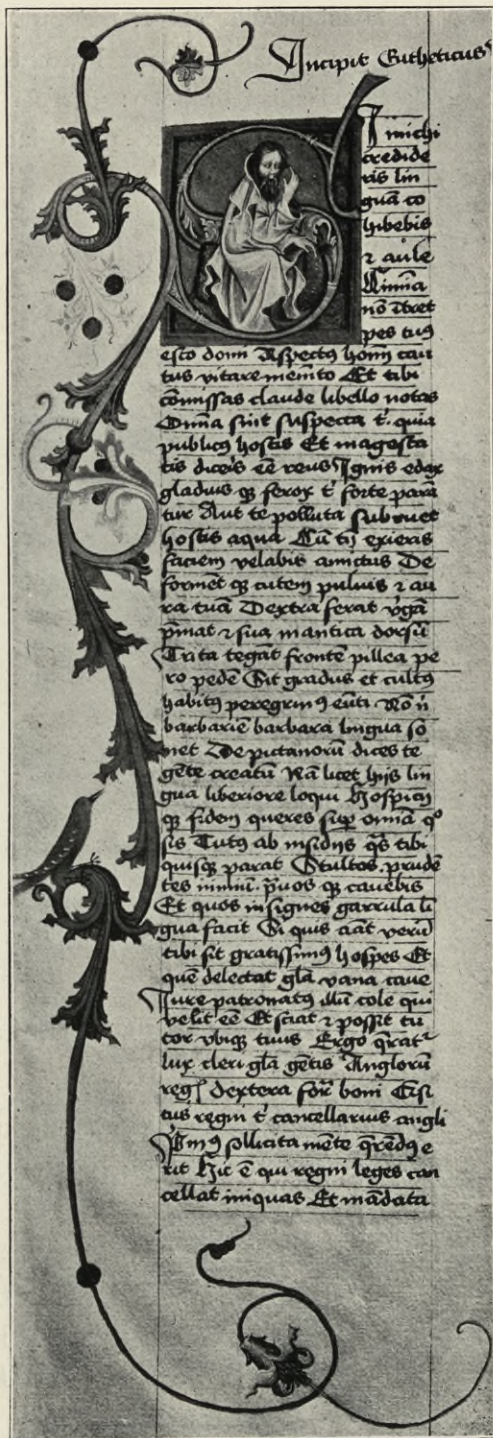 Incipit Eutheticus
Si michi
credide
ris lin
guā co
hibebis
⁊ aule
Limīa
nō t̄ret
pes tuꝰ
esto domi Aspectꝰ homīn cau
tus vitare memēto Et tibi
cōmissas claude libello notas
Omīa sint suspecta t̄. quia
publicꝰ hostis Et magesta
tis diceris eē reus Ignis edax
gladius qꝫ ferox t̄ forte parā
tur Aut te polluta subruet
hostis aqua Cū tn̄ exieris
faciem velabis amictus De
formet qꝫ cutem puluis ⁊ au
ra tuā Dextra ferat v̓gā
p̄mat ⁊ sua mantica dorsū
Trita tegāt frontē pillea pe
ro pedē Sit gradus et cultꝰ
habitꝰ peregrinꝰ eūti Nō n̄
barbariē barbara lingua so
net De pictanorū dices te
gēte creatū Nā licet hijs lin
gua liberiore loqui Hospicij
qꝫ fidem queres sup̄ omīa qͦ
sis Tutꝰ ab insidijs q̄s tibi
quisqꝫ parat Stultos. prudē
tes nimiū. p̄uos qꝫ cauebis
Et quos insignes garrula lī
gua facit Si quis amat verū
tibi sit gratissimꝰ hospes Et
quē delectat gl̄a vana caue
Iure patronatꝰ illū cole qui
velit eē Et sciat ⁊ possit tu
tor vbiqꝫ tuus Ergo q̄rat
lux cleri gl̄a gētis Anglorū
reḡ dextera for̄ boni Cisi
tus regni t̄ cancellarius angli
Pimꝰ sollicita mēte q̄rēdꝰ e
rit Hic ē qui regni leges can
cellat iniquas Et mādata